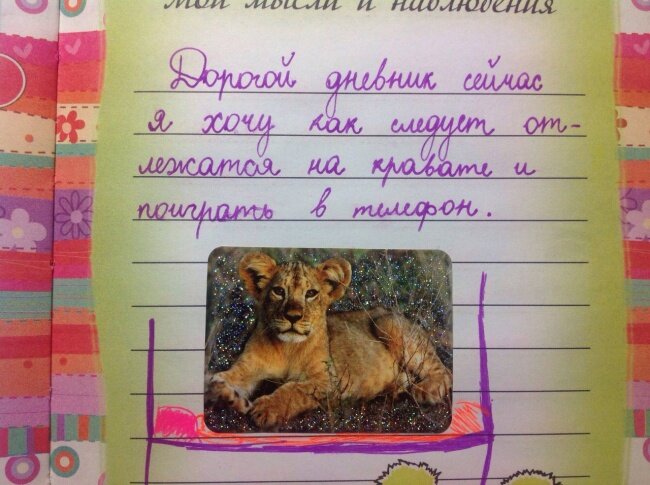 Мои мысли и наблюдения
Дорогой дневник сейчас
я хочу как следует от-
лежатся на кравате и
поиграть в телефон.